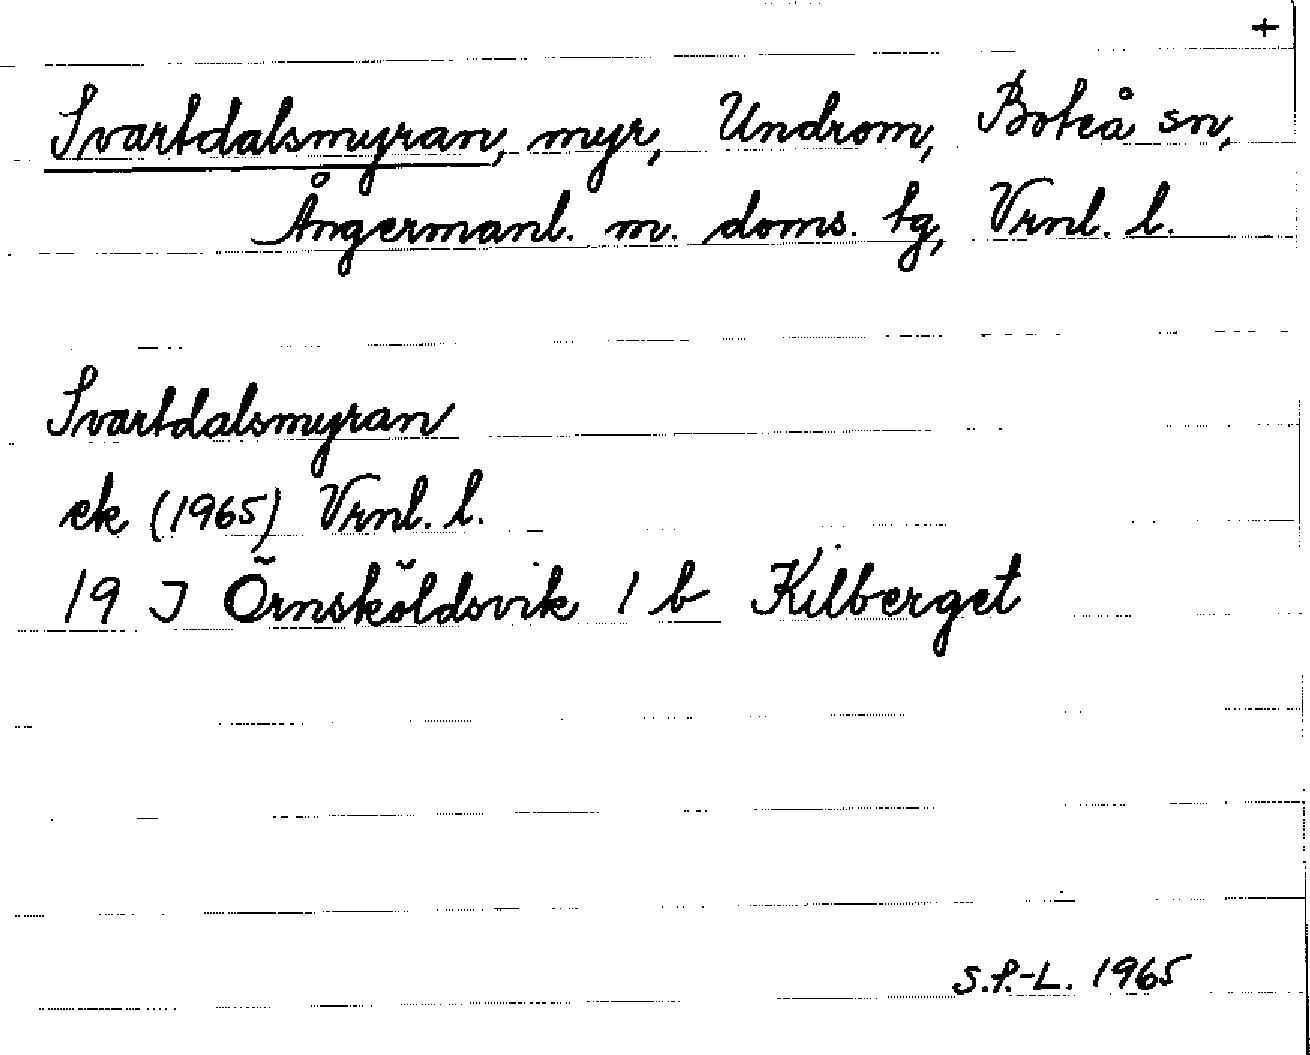 +
Svartdalsmyran, myr, Undrom, Boteå sn,
Ångermanl. m. doms. tg, Vrnl. l.
Svartdalsmyran
ek (1965) Vrnl. l.
19 J Örnsköldsvik 1 b Kilberget
S.P.-L. 1965